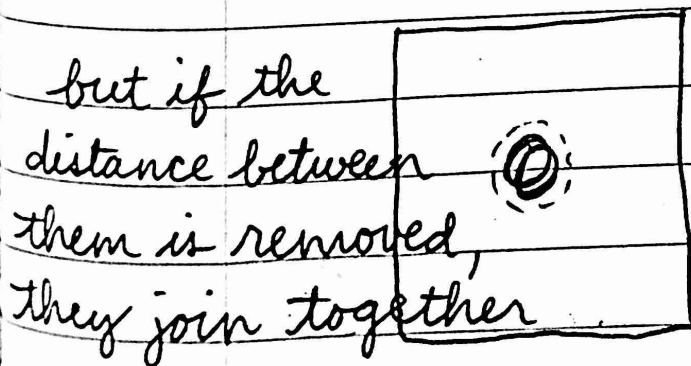 but if the
distance between
them is removed,
they join together